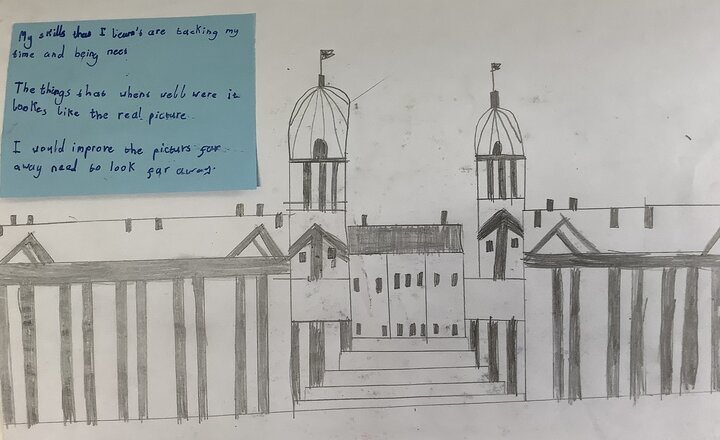 My skills that I learn's are tacking my
time and being neet
The things that whent well were it
lookes like the real picture.
I would improve the picturs far
away need to look far away.